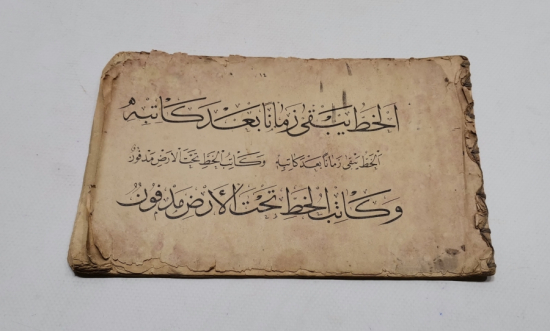 الخط يبقى زمانا بعد كاتبه
الخط يبقى زمانا بعد كاتبه وكاتب الخط تحت الأرض مدفون
وكاتب الخط تحت الأرض مدفون